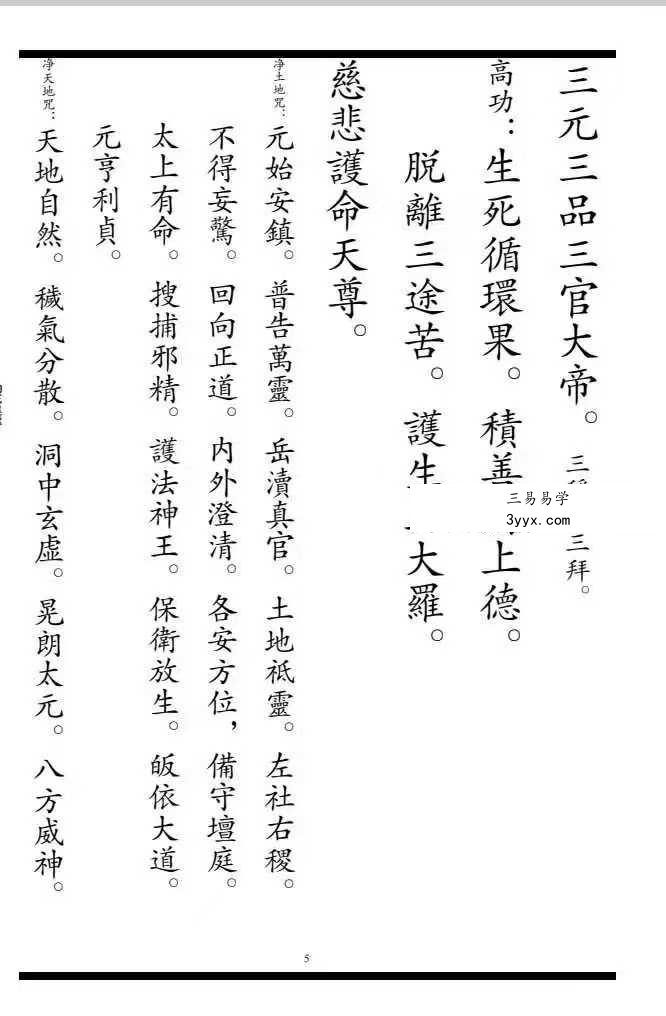 三元三品三官大帝。 三 三拜。
高功：生死循環果。 積善 上德。
脱離三途苦。 護生 大羅。
慈悲護命天尊。
净土地咒：元始安鎮。 普告萬靈。 岳瀆真官。 土地祇靈。 左社右稷。
不得妄驚。 回向正道。 内外澄清。 各安方位， 備守壇庭。
太上有命。 搜捕邪精。 護法神王。 保衛放生。 皈依大道。
元亨利貞。
净天地咒：天地自然。 穢氣分散。 洞中玄虛。 晃朗太元。 八方威神。
三易易学
3yyx.com
5